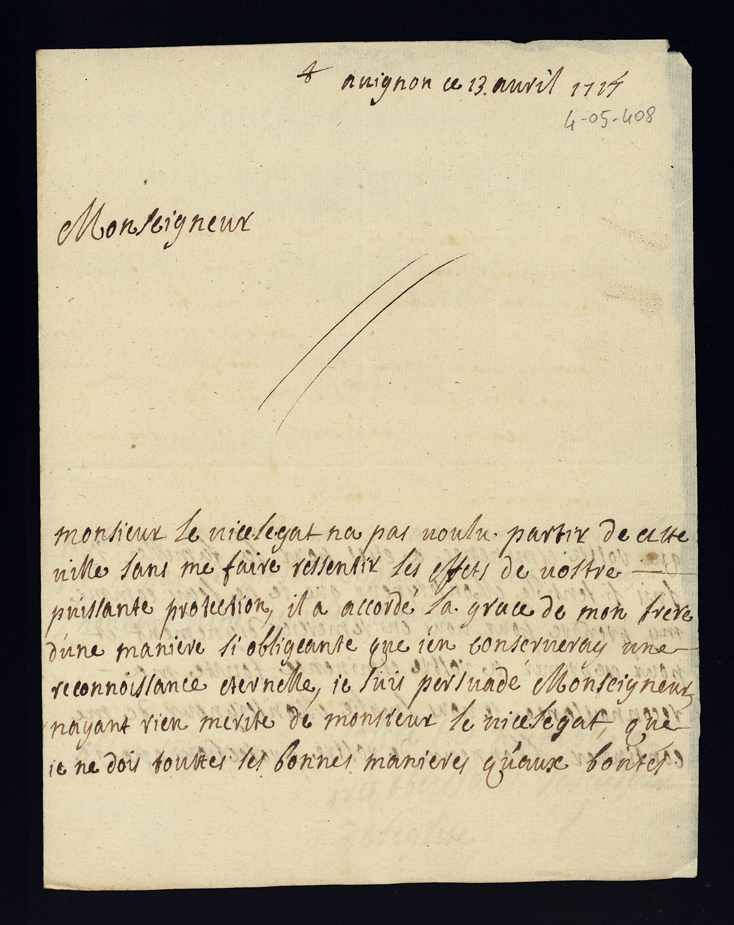 avignon ce 13. avril 1717
4-05-408
Monseigneur
monsieur le vicelegat na pas voulu partir de cette
ville sans me faire ressentir les effets de vostre
puissante protection, il a accordé la grace de mon frere
d'une maniere si obligeante que i'en conserveray une
reconnoissance eternelle, ie suis persuadé Monseigneur
nayant rien merité de monsieur le vicelegat, que
ie ne dois touttes ses bonnes manieres qu'aux bontés